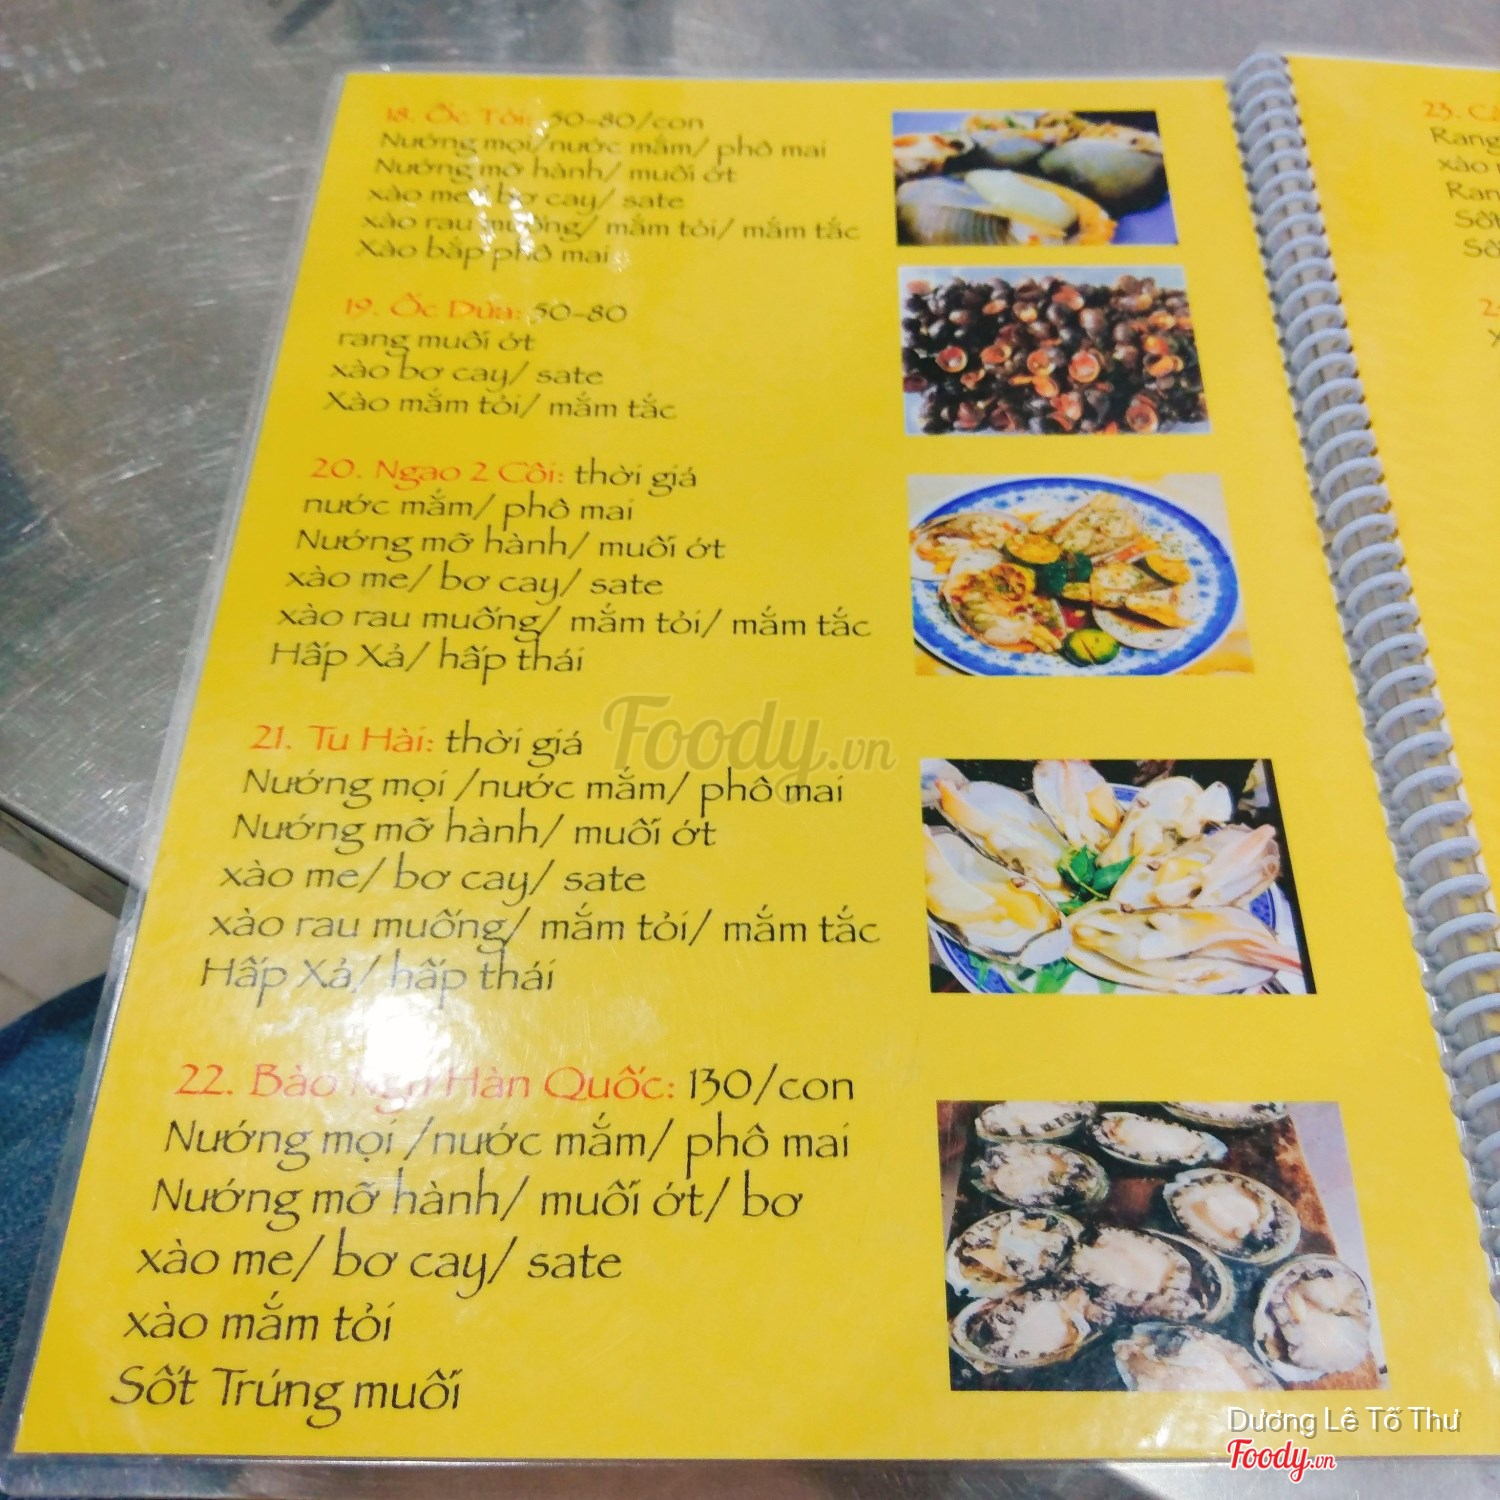 18. Ốc Tỏi: 50-80/con
Nướng mọi/nước mắm/ phô mai
Nướng mỡ hành/ muối ớt
xào me/ bơ cay/ sate
xào rau muống/ mắm tỏi/ mắm tắc
Xào bắp phô mai
19. Ốc Dừa: 50-80
rang muối ớt
xào bơ cay/ sate
Xào mắm tỏi/ mắm tắc
20. Ngao 2 Cồi: thời giá
nước mắm/ phô mai
Nướng mỡ hành/ muối ớt
xào me/ bơ cay/ sate
xào rau muống/ mắm tỏi/ mắm tắc
Hấp Xả/ hấp thái
21. Tu Hài: thời giá
Nướng mọi /nước mắm/ phô mai
Nướng mỡ hành/ muối ớt
xào me/ bơ cay/ sate
xào rau muống/ mắm tỏi/ mắm tắc
Hấp Xả/ hấp thái
22. Bào Ngư Hàn Quốc: 130/con
Nướng mọi /nước mắm/ phô mai
Nướng mỡ hành/ muối ớt/ bơ
xào me/ bơ cay/ sate
xào mắm tỏi
Sốt Trứng muối
23.
Rang
xào
Sốt
Foody.vn
Dương Lê Tố Thư
Foody.vn